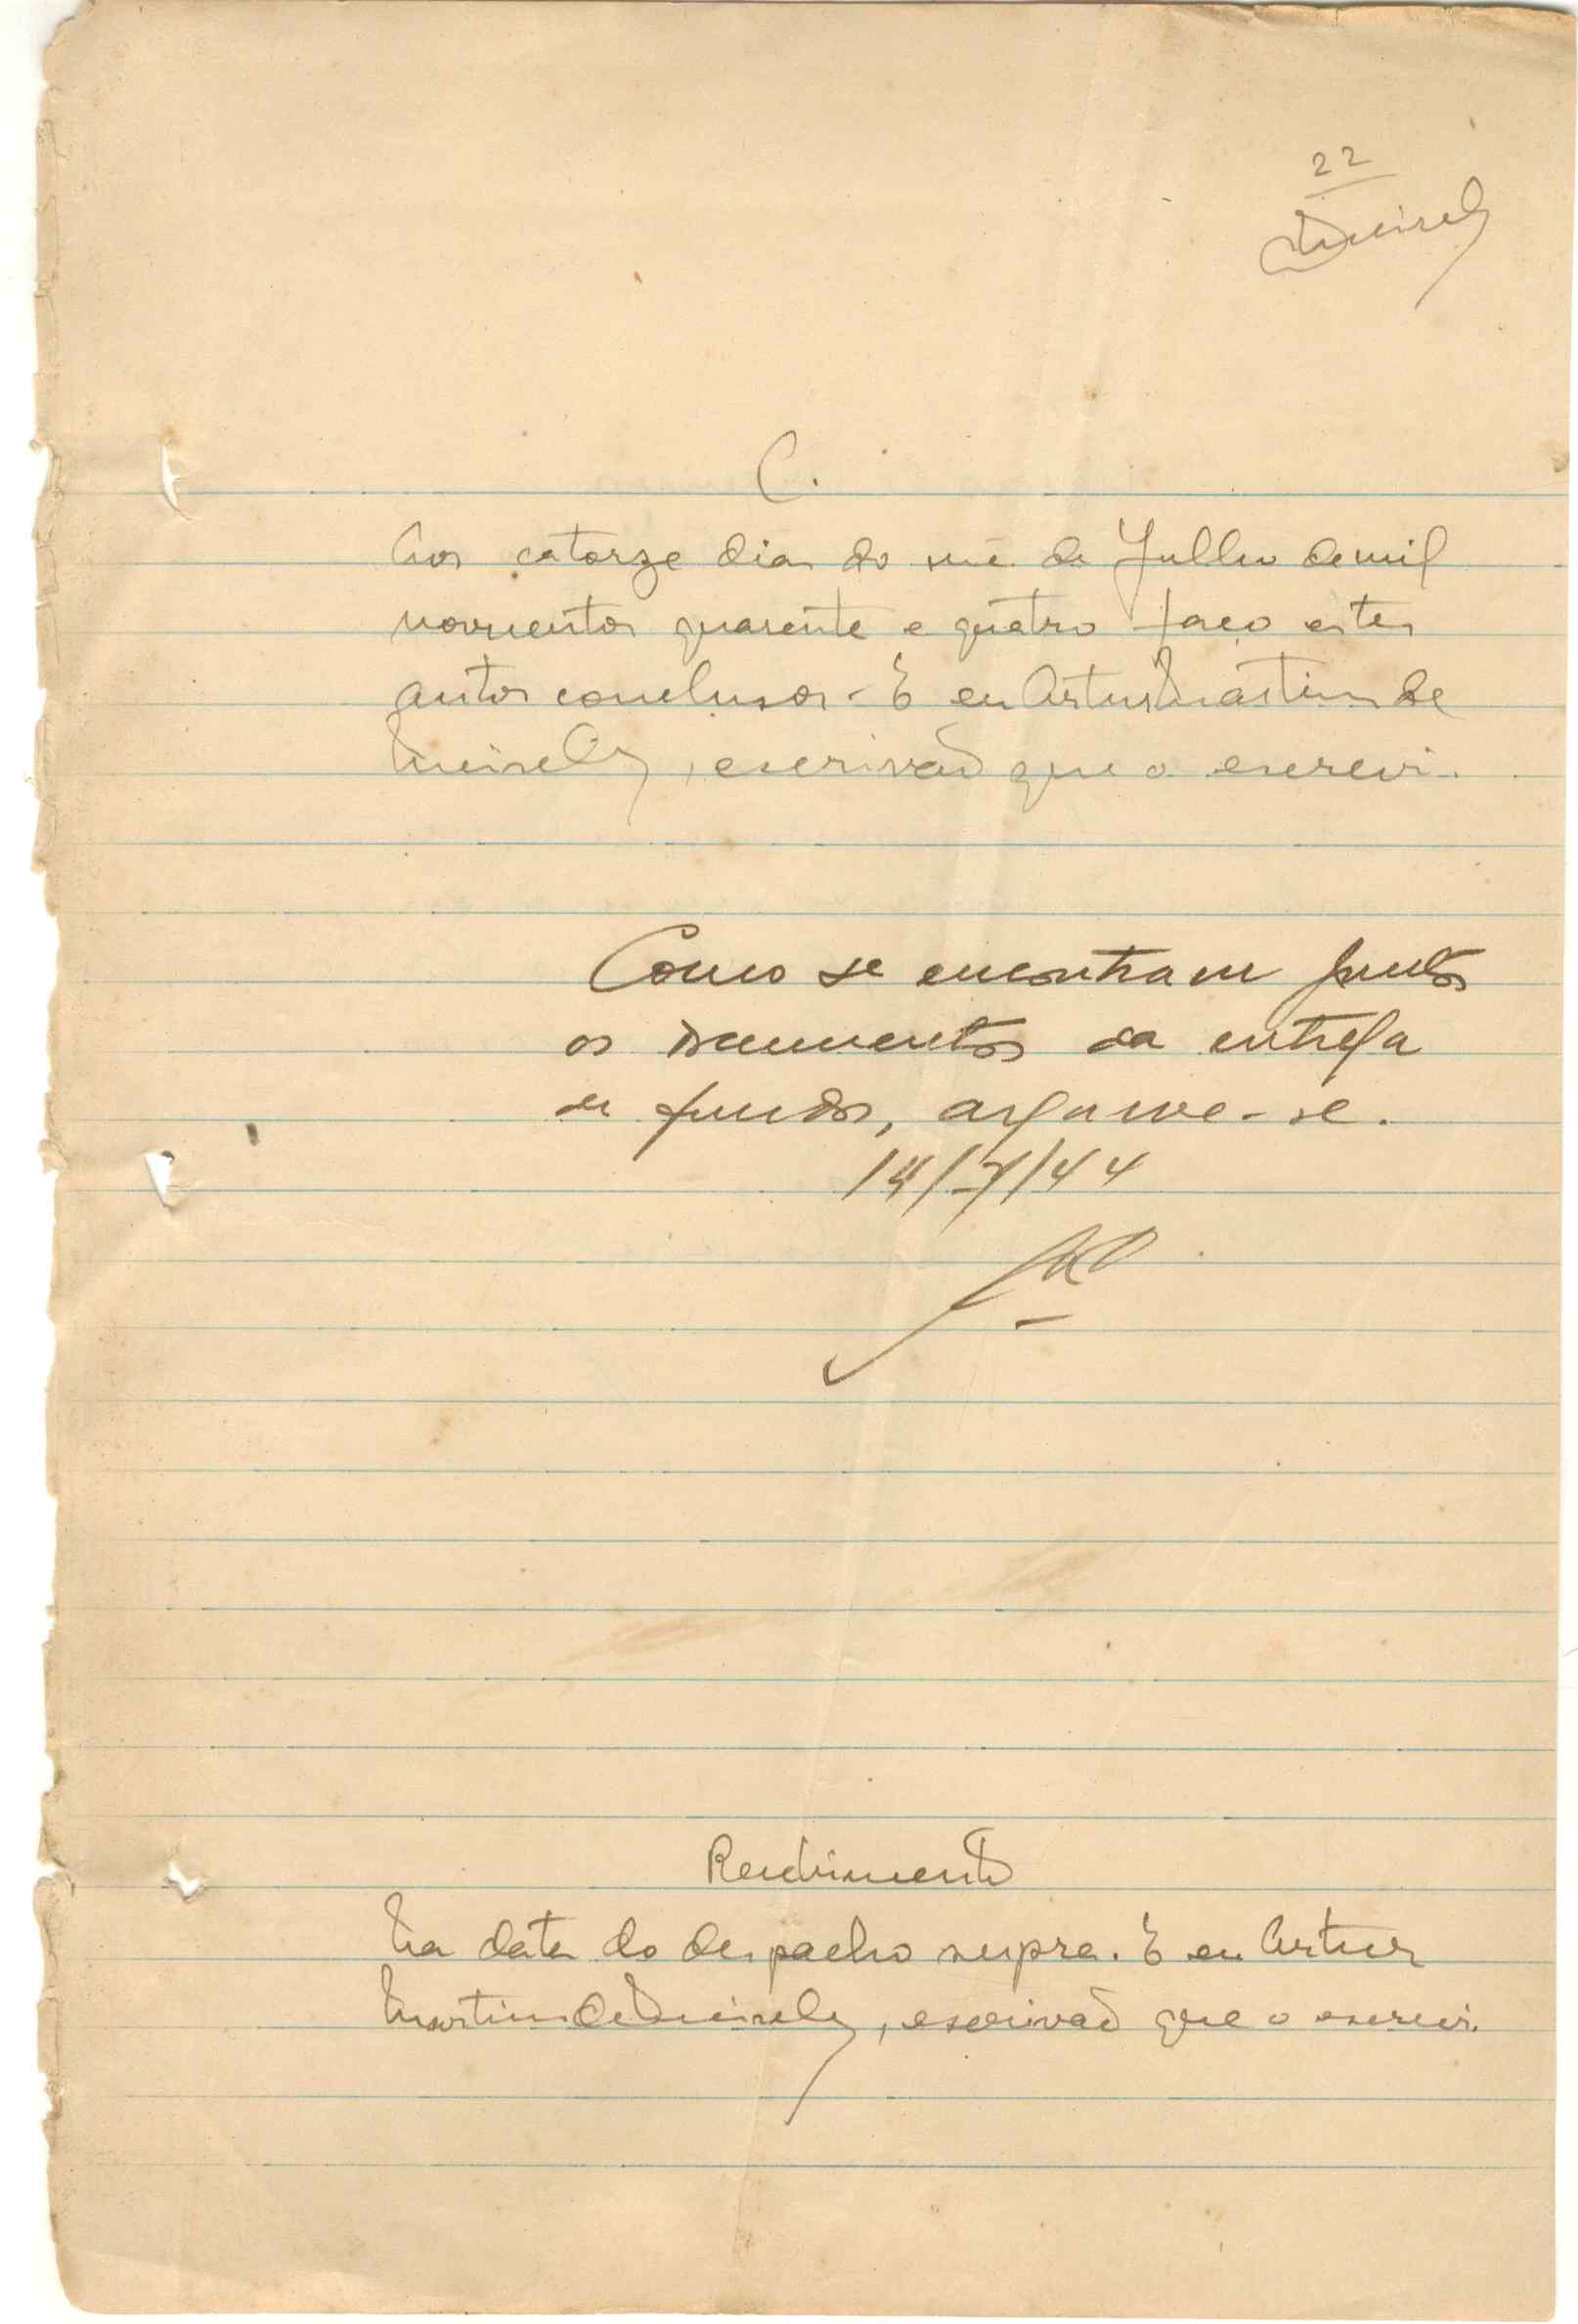 22
Meireles
C.
Aos catorze dias do mês de Julho de mil
novecentos quarenta e quatro faço estes
autos conclusos - E eu Artur Martins de
Meireles, escrivão que o escrevi.
Como se encontram juntos
os documentos da entrega
de fundos, arquive-se.
14/7/44
Recebimento
Na data do despacho supra. E eu Artur
Martins de Meireles, escrivão que o escrevi.